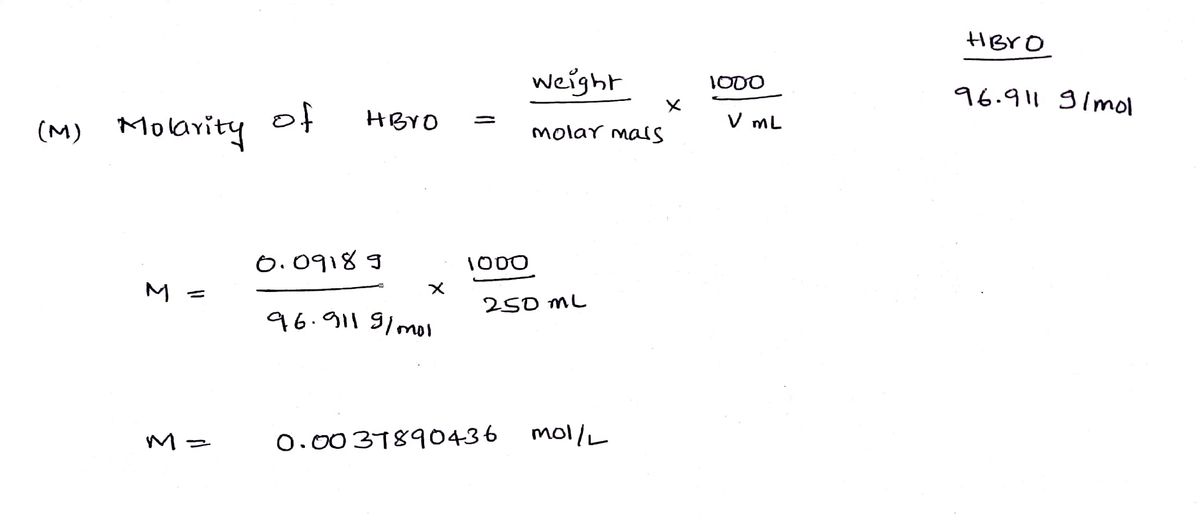 HBrO
96.911 g/mol
(M) Molarity of HBrO = weight / molar mass × 1000 / V mL
M = 0.0918 g / 96.911 g/mol × 1000 / 250 mL
M = 0.0037890436 mol/L